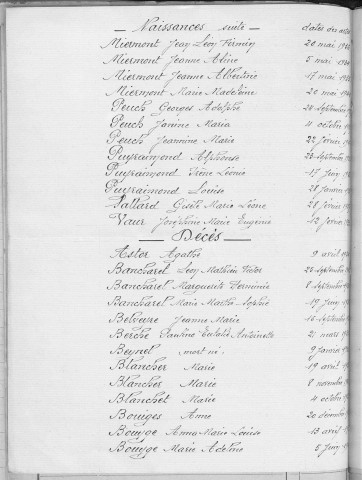 Naissances suite dates des actes
Miermont Jean Léon Firmin 20 mai
Miermont Jeanne Aline 5 mai
Miermont Jeanne Albertine 17 mai
Miermont Marie Madeleine 20 mai
Peuch Georges Adolphe 24 septembre
Peuch Janine Marie 4 octobre
Peuch Jeannine Marie 22 février
Puyraimond Alphonse 23 septembre
Puyraimond Irène Léonie 17 juin
Puyraimond Louise 28 janvier
Vallard Gisèle Marie Léone 28 janvier
Vaur Joséphine Marie Eugénie 12 février
Décès
Astor Agathe 9 avril
Bancharel Léon Mathieu Victor 26 septembre
Bancharel Marguerite Firminie 8 septembre
Bancharel Marie Marthe Sophie 19 juin
Belveyre Jeanne Marie 16 septembre
Berche Pauline Antoinette 21 mars
Beynel mort né 9 janvier
Blancher Marie 19 avril
Blancher Marie 8 novembre
Blanchet Marie 4 octobre
Bouiges Anne 20 décembre
Bouyge Anna Marie Louise 13 avril
Bouyge Marie Adeline 5 juin